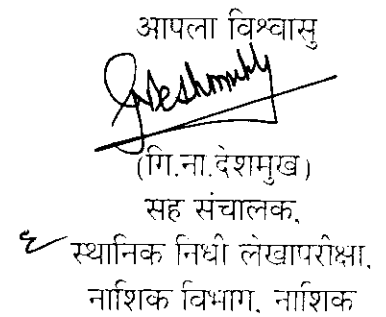 आपला विश्वासु
GNDeshmukh
(गि.ना.देशमुख)
सह संचालक,
स्थानिक निधी लेखापरीक्षा,
नाशिक विभाग, नाशिक